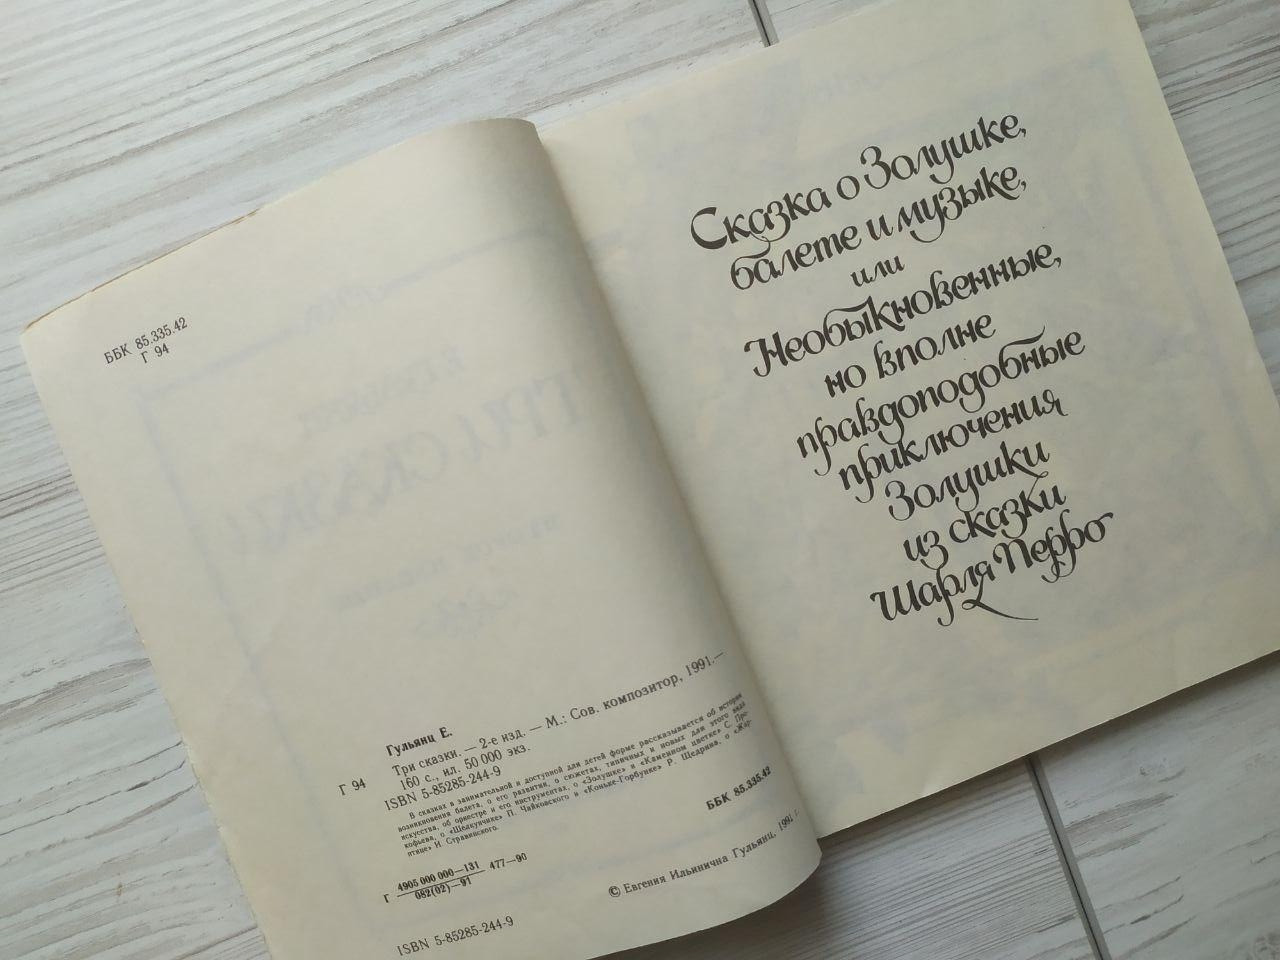 ББК 85.335.42
Г 94
Гульянц Е.
Г 94
Три сказки. — 2-е изд. — М.: Сов. композитор, 1991.—
160 с., ил. 50 000 экз.
ISBN 5-85285-244-9
В сказках в занимательной и доступной для детей форме рассказывается об истории
возникновения балета, о его развитии, о сюжетах, типичных и новых для этого вида
искусства, об оркестре и его инструментах, о «Золушке» и «Каменном цветке» С. Про-
кофьева, о «Щелкунчике» П. Чайковского и «Коньке-Горбунке» Р. Щедрина, о «Жар-
птице» И. Стравинского.
Г 4905000000—131
082(02)—91
477—90
ББК 85.335.42
© Евгения Ильинична Гульянц, 1991 г.
ISBN 5-85285-244-9
Сказка о Золушке,
балете и музыке,
или
Необыкновенные,
но вполне
правдоподобные
приключения
Золушки
из сказки
Шарля Перро